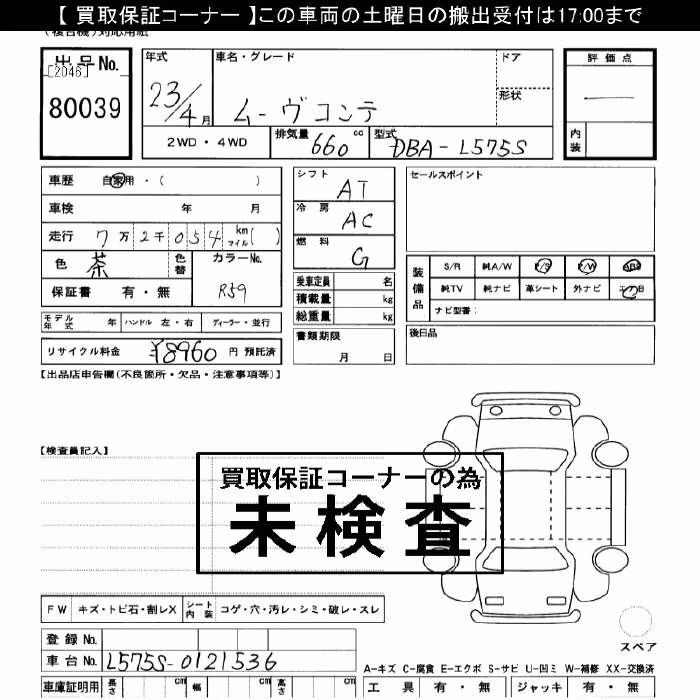 【 買取保証コーナー 】この車両の土曜日の搬出受付は17:00まで
(複合機)対応用紙
出品No.
[2046]
80039
年式
23/4月
車名・グレード
ムーヴコンテ
ドア
形状
評価点
—
内装
2WD・4WD
排気量 660 cc
型式 DBA-L575S
車歴 自家用・( )
車検 年 月
走行 7万2千054 km マイル( )
色 茶
色替
カラーNo. R59
保証書 有・無
シフト AT
冷房 AC
燃料 G
乗車定員 名
積載量 kg
総重量 kg
セールスポイント
装備品
S/R 純A/W P/S P/W ABS
純TV 純ナビ 革シート 外ナビ エアB
ナビ型番:
モデル年式 年 ハンドル 左・右 ディーラー・並行
リサイクル料金 ¥8960 円 預託済
書類期限
月 日
後日品
【出品店申告欄(不良箇所・欠品・注意事項等)】
【検査員記入】
買取保証コーナーの為
未検査
FW キズ・トビ石・割レX シート内装 コゲ・穴・汚レ・シミ・破レ・スレ
登録No.
車台No. L575S-0121536
スペア
A-キズ C-腐食 E-エクボ S-サビ U-凹ミ W-補修 XX-交換済
車庫証明用 長さ cm 幅 cm 高さ cm
工具 有・無 ジャッキ 有・無